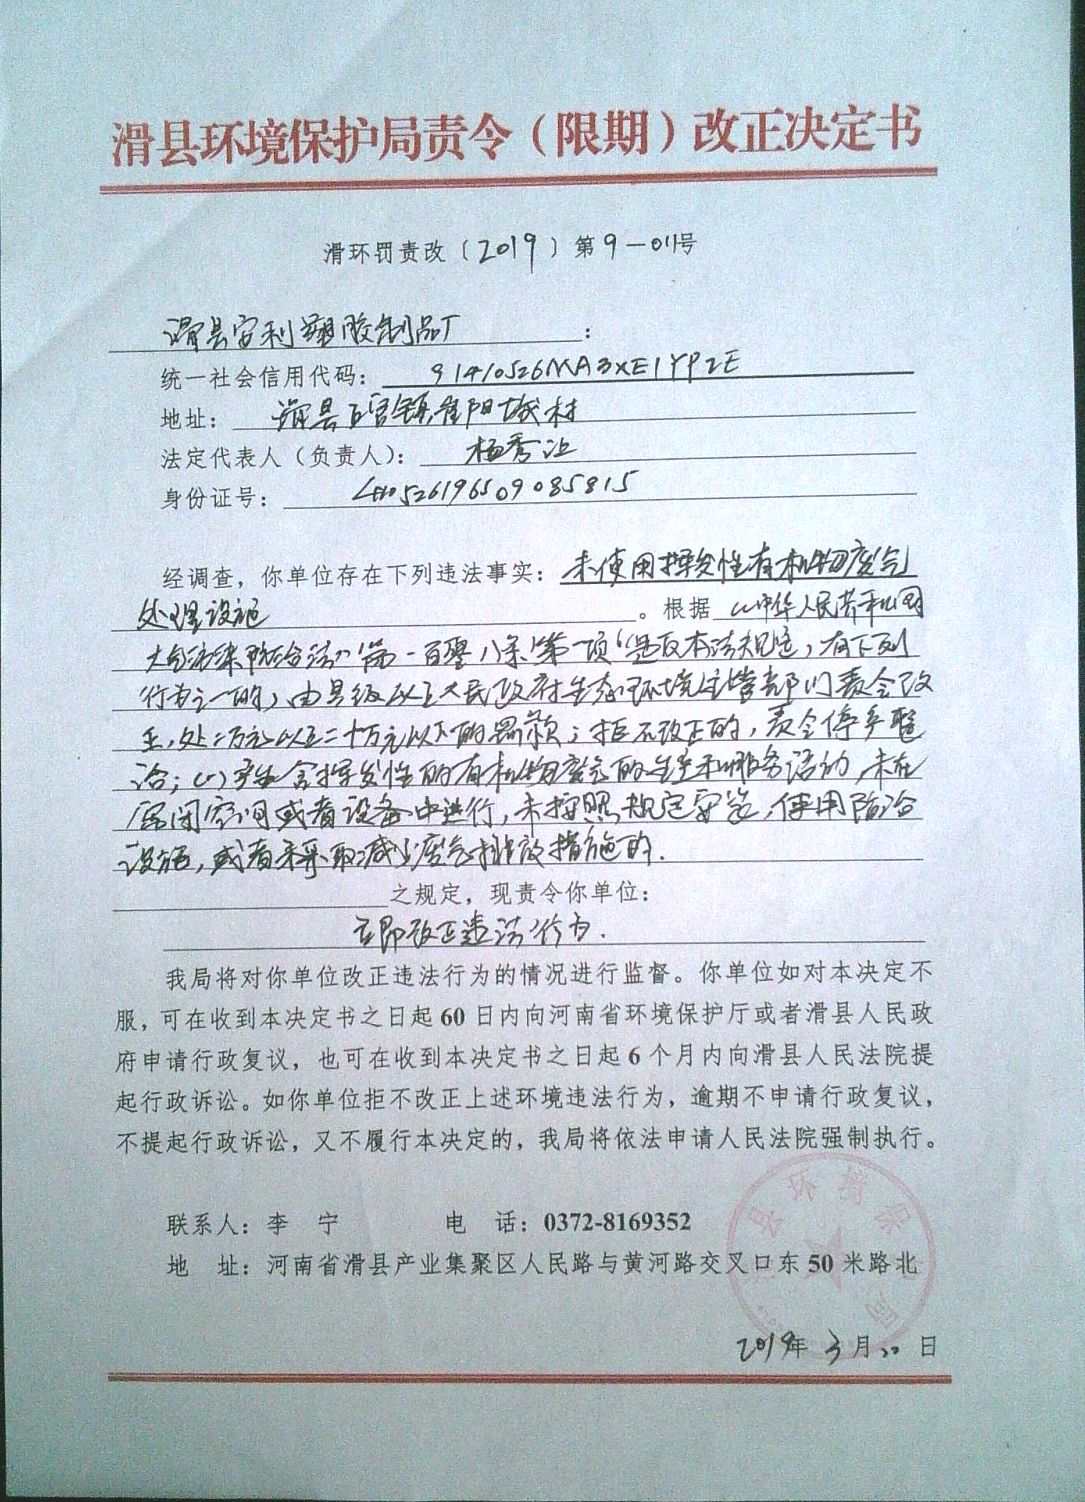 滑县环境保护局责令（限期）改正决定书
滑环罚责改〔2019〕第9－011号
滑县安利塑胶制品厂：
统一社会信用代码：91410526MA3XE1YP2E
地址：滑县白道口镇崔阳城村
法定代表人（负责人）：杨秀
身份证号：410526196509085815
经调查，你单位存在下列违法事实：未使用挥发性有机物废气
处理设施。根据《中华人民共和国
大气污染防治法》第一百零八条第一项“违反本法规定，有下列
行为之一的，由县级以上人民政府生态环境主管部门责令改
正，处二万元以上二十万元以下的罚款；拒不改正的，责令停产整
治；（一）产生含挥发性的有机物废气的生产和服务活动，未在
密闭空间或者设备中进行，未按照规定安装、使用防治
设施，或者未采取减少废气排放措施的.
之规定，现责令你单位：
立即改正违法行为.
我局将对你单位改正违法行为的情况进行监督。你单位如对本决定不
服，可在收到本决定书之日起60日内向河南省环境保护厅或者滑县人民政
府申请行政复议，也可在收到本决定书之日起6个月内向滑县人民法院提
起行政诉讼。如你单位拒不改正上述环境违法行为，逾期不申请行政复议，
不提起行政诉讼，又不履行本决定的，我局将依法申请人民法院强制执行。
联系人：李 宁 电 话：0372-8169352
地 址：河南省滑县产业集聚区人民路与黄河路交叉口东50米路北
县环境保 局
2019年3月30日